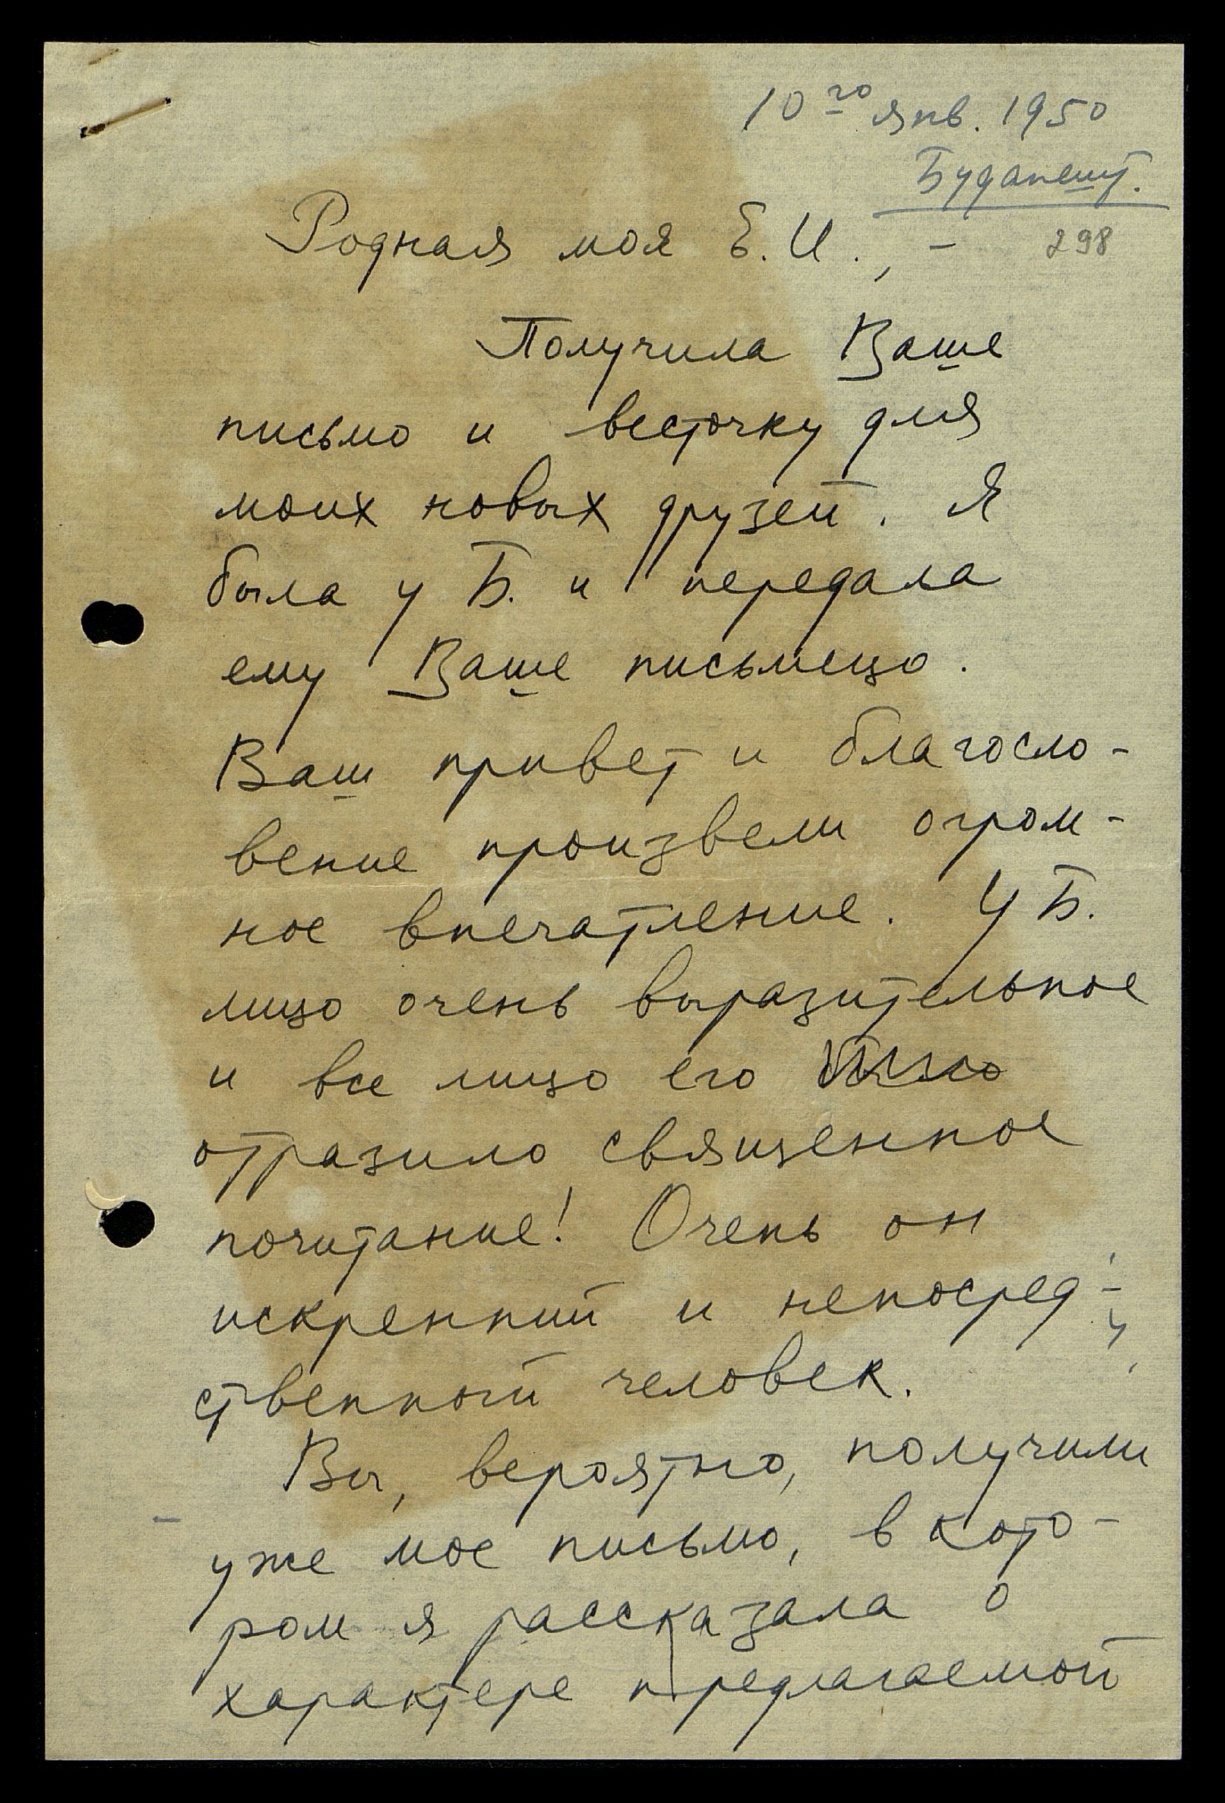 10го янв. 1950
Будапешт.
298
Родная моя Е.И., –
Получила Ваше
письмо и весточку для
моих новых друзей. Я
была у Б. и передала
ему Ваше письмецо.
Ваш привет и благосло-
вение произвели огром-
ное впечатление. У Б.
лицо очень выразительное
и все лицо его
отразило священное
почитание! Очень он
искренний и непосред-
ственный человек.
Вы, вероятно, получили
уже мое письмо, в кото-
ром я рассказала о
характере предлагаемой